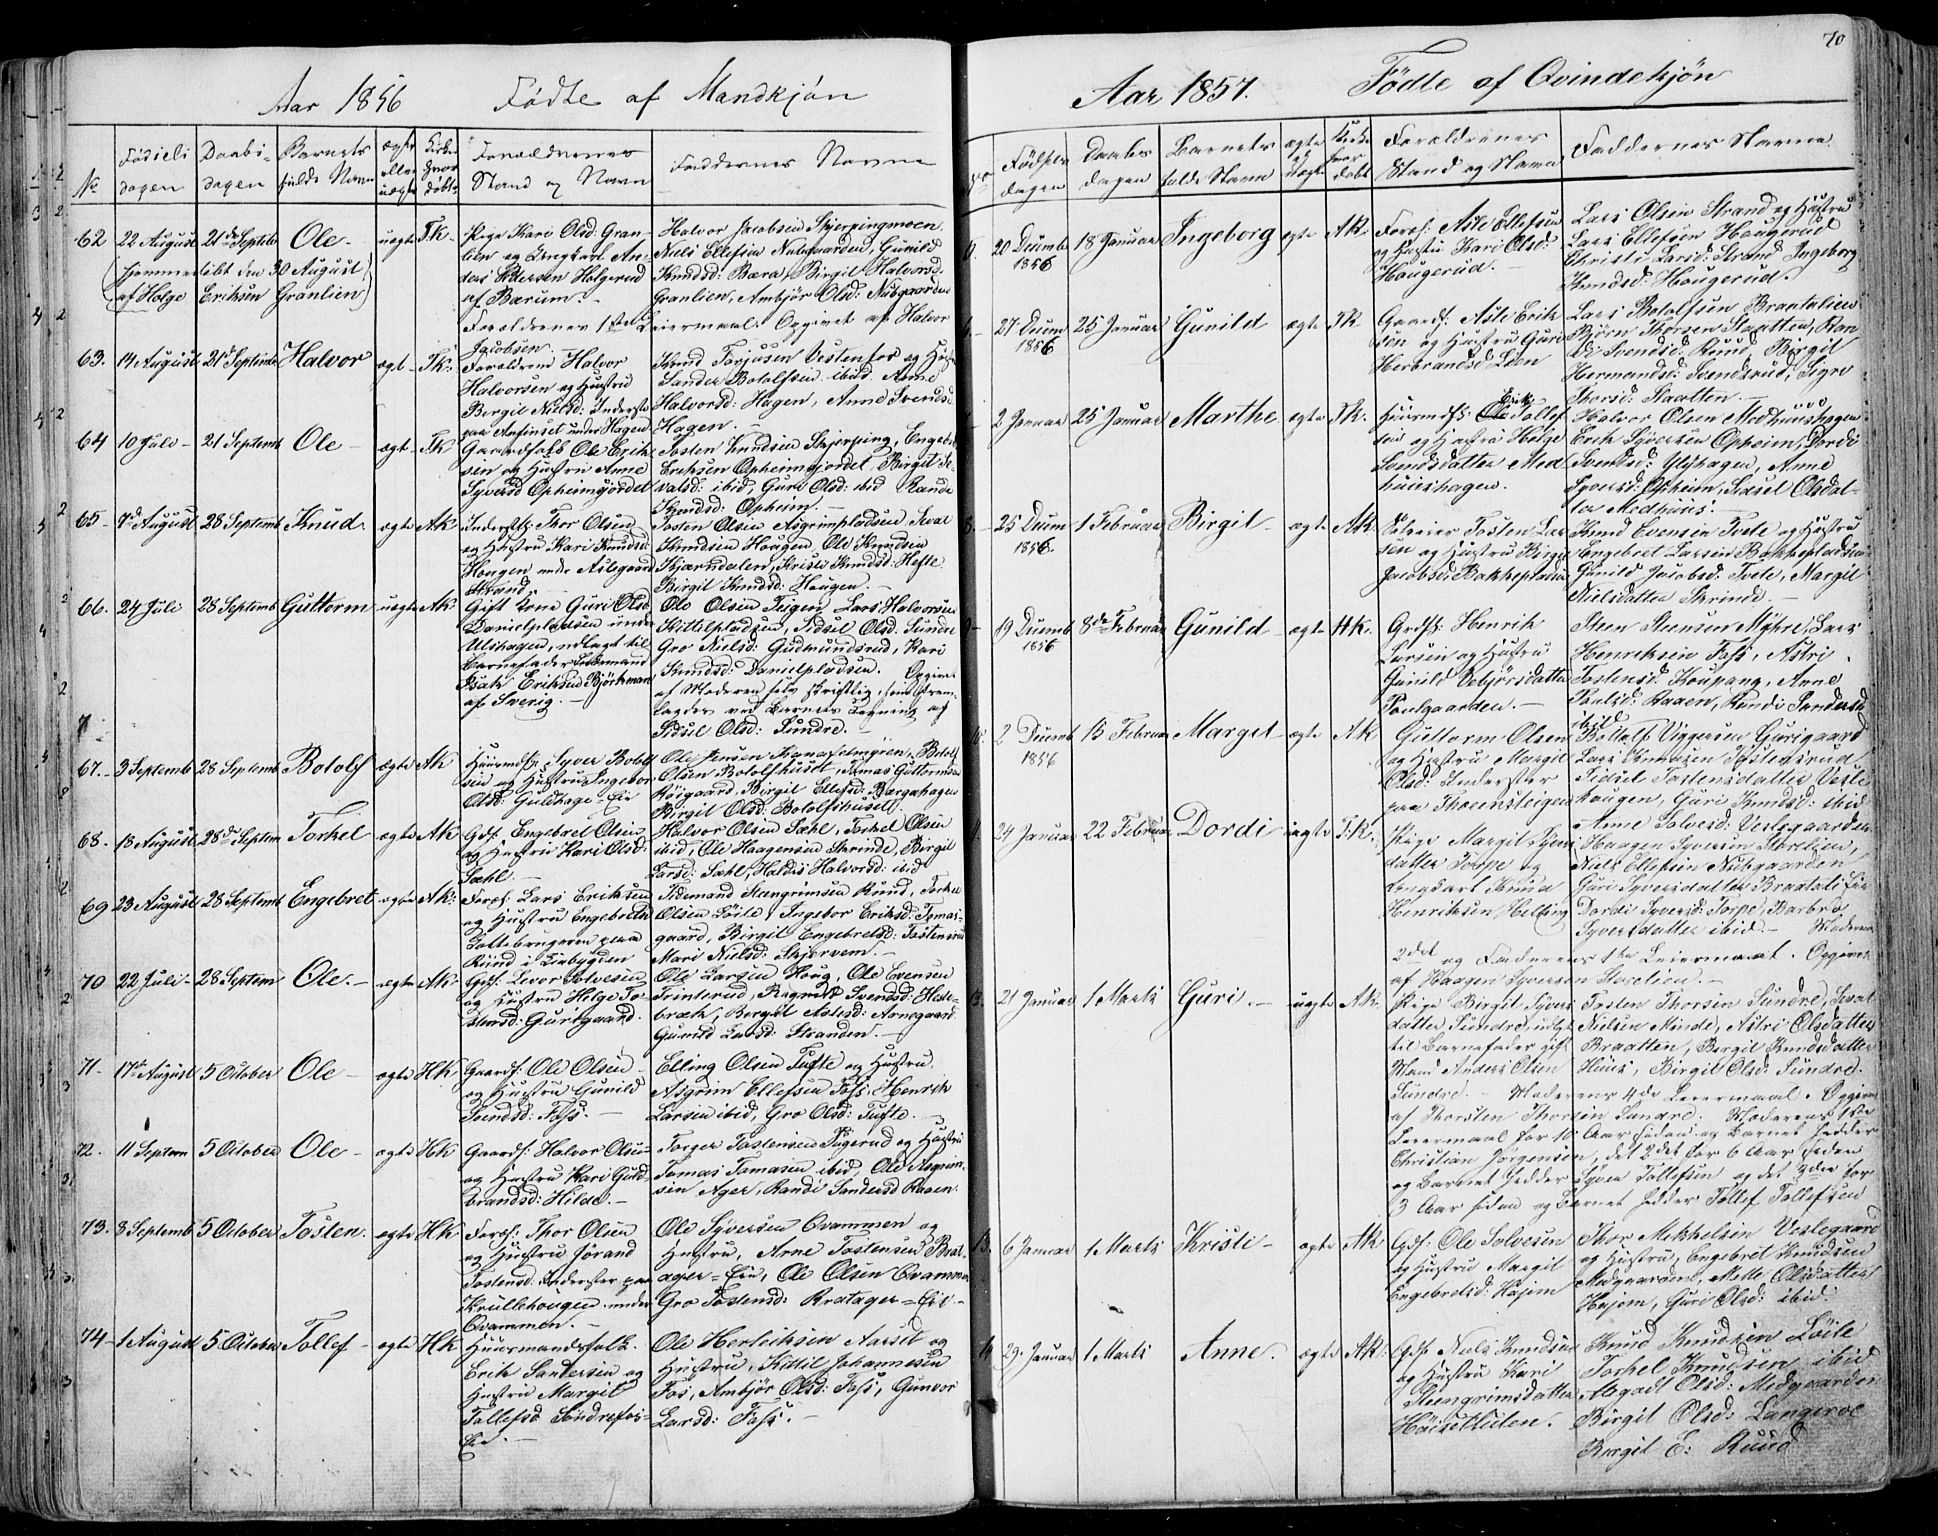 Aar 1856 Fødte af Mandkjøn
No Fødsels dagen Daabs- dagen Barnets fulde Navn ægte eller uægte Kirke hvor døbt Forældrenes Stand og Navn Faddernes Navne
62 22 August 21de Septeb Ole - uægte T.K. Pige Kari Olsd. Gran-
lien og Ungkarl An-
ders Pedersen Holgerud
af Bærum. -
(Hjemmedøbt den 30 August
af Helge Eriksen Granlien)
Halvor Jacobsen Skjerpingmoen
Niels Ellefsen Nubgaarden, Gunild
Knudsd: Bæra, Birgit Halvorsd:
Granlien, Ambjør Olsd: Nubgaarden
Forældrenes 1ste Leiermaal. Opgivet af Halvor
Jacobsen. -
63. 14 August 21d Septembe Halvor ægte T.K. Forældrene Halvor
Halvorsen og Hustru
Bergit Nielsd: Inderste
paa Anfinset under Hagen
Knud Torjusen Vestenfor og Hustru
Sander Botolfsen ibid. Anne
Halvorsd: Hagen, Anne Svendsd
Hagen. -
64 10 Juli - 21 Septemb Ole - ægte T.K Gaardfolk Ole Erik-
sen og Hustru Anne
Syversd Opheimgjordet
Tosten Knudsen Skjerping, Engebr
Eriksen Opheimgjordet, Birgit Se-
valsd: ibid, Guri Olsd: ibid Rande
Opheim. -
65- 7d August 28 Septemb Knud. ægte A.K. Inderstf: Thor Olsen
og Hustru Kari Knudsd:
Haugen under Aslegaard
Strand. -
Tosten Olsen Asgrimpladsen, Seval
Knudsen Haugen Ole Knudsen
Kjærnsdalen, Kristi Knudsd: Hefte
Birgit Knudsd: Haugen. -
66. 24 Juli 28 Septemb Guttorm uægte A.K. Gift Kone Guri Olsd.
Danielpladsen under
Ulshagen, udlagt til
Barnefader
Isak Eriksen Björkman
af Sverig. -
Ole Olsen Teigen, Lars Halvorsen
Kittilpladsen, Sidsel Olsd. Sundre
Gro Nielsd: Gudmundsrud, Kari
Knudsd: Danielpladsen. Opgivet
af Moderen selv skriftlig, som frem-
lagdes ved Barnets af
Sidsel Olsd: Sundre. -
67. - 3 Septemb 28 Septemb Botolf ægte A.K Huusmdf: Syver Botolf
sen og Hustru Ingebor
Olsd: Guldhage-Eie
Ole Jensen Botolf
Olsen Botolfhuset, Tomas Guttormsen
Røisgaard, Birgit Ellefsd: Bergahagen
Birgit Olsd: Botolfshuset. -
68. 13 August 28de Septem Torkel ægte A.K. Gdf. Engebret Olsen
og Hustru Kari Olsd:
Sæhl. -
Halvor Olsen Sæhl, Torkel Olsen
ibid, Ole Haagensen Skrinde, Birgit
Larsd: Sæhl, Haldis Halvorsd: ibid
69 23 August 28 Septemb Engebret ægte A.K: Foræl Lars Eriksen
og Hustru Engebretsd
paa
Ruud i
Tidemand Stengrimsen Ruud, Torkel
Olsen Løite, Ingebor Eriksd: Tomas-
gaard, Birgit Engebretsd: Tostensrud
Mari Nielsd: Skjervem. -
70 22 Juli - 28 Septem Ole. - ægte A.K. Gdf: Levor Solvesen
og Hustru Helge To-
stensd: Gurigaard.
Ole Larsen Haug, Ole Evensen
Trinterud, Ragnild Svendsd: Hilde-
bræk, Bergit Astesd: Arnegaard
Gunild Larsd: Stranden. -
71- 17de August 5 October Ole - ægte H.K. Gaardf: Ole Olsen
og Hustru Gunild
Svendsd: Foss. -
Elling Olsen Tufte og Hustru,
Asgrim Ellefsen Foss, Henrik
Larsen ibid, Gro Olsd: Tufte. -
72. 11 Septem 5 October Ole - ægte H.K Gaardf: Halvor Olsen
og Hustru Kari Guld-
brandsd: Hilde. -
Torger Tostensen Fugerud og Hustru
Tomas Tomasen ibid, Ole Asgrim-
sen Ager, Randi Sandersd Raaen.
73. 8 Septemb 5 October Tosten. ægte H.K Foræf: Thor Olsen
og Hustru Jørand
Tostensd: Inderster paa
Krullehougen under
Qvammen. -
Ole Syversen Qvammen og
Hustru, Arne Tostensen Brat-
ager-Eie, Ole Olsen Qvammen
Gro Tostensd: Bratager-Eie -
74- 1 August 5 October Tollef - ægte H.K. Huusmandsfolk.
Erik Sandersen og
Hustru Margit
Tollefsd Søndrefos-
Eie. -
Ole Herleiksen Aarset og
Hustru, Kittil Johannesen
Fos, Ambjør Olsd: Foss, Gunvor
Larsd: Foss. -
Aar 1857. Fødte af Qvindekjøn
70
No Fødsels dagen Daabs dagen Barnets fulde Navn ægte el uægte Kirke hvor døbt Forældrenes Stand og Navn Faddernes Navne
20 Decmb 1856 18 Januar Ingeborg ægte A.K. Foræf: Asle Ellefsen
og Hustru Kari Olsd:
Haugerud. -
Lars Olsen Strand og Hustru
Lars Ellefsen Haugerud
Christi Larsd: Strand Ingeborg
Knudsd: Haugerud. -
27 Decmb 1856 25 Januar Gunild ægte T.K Gaardf: Asle Erik
sen og Hustru Guri
Herbrandsd Lien
Lars Botolfsen Brautalien
Bjørn Thorsen Slaatten, Ran
di Svendsd: Ruud, Birgit
Hermandsd: Svendsrud, Sigre
Thorsd: Slaatten. -
2 Januar 25 Januar Marthe ægte T.K. Huusmdf: Erik Tollef
sen og Hustru Helge
Svendsdatter Med-
huushagen.
Halvor Olsen Medhuushagen
Erik Syversen Opheim, Dordi
Svendsd: Ulshagen, Anne
Syversd: Opheim, Sidsel Olsdat-
ter Medhuus. -
8. 25 Decm 1856. 1 Februar Birgit - ægte A.K. Selveier Tosten Lar
sen og Hustru Birgit
Jacobsd: Bakkepladsen
Knud Evensen Tvete og Hustru
Engebret Larsen Bakkepladsen
Gunild Jacobsd: Tvete, Margit
Nielsdatter Skrinde. -
9- 19 Decmb 1856 8de Februar Gunild - ægte H.K. Grdf: Henrik
Larsen og Hustru
Gunild Vebjørsdatter
Poulgaarden. -
Sten Stensen Myhre, Lars
Henriksen Foss, Astri
Tostensd: Koupang, Anne
Paulsd: Raaen, Randi Sandersd
ibid
10. 2 Decmb 1856 15 Februar Margit ægte A.K Guttorm Olsen
og Hustru Margit
Olsd: Inderster
paa Thoensteigen
Bottolf Viggersen Gurigaard
Lars Knudsen Tostensrud
Sidsel Tostensdatter Vesle
haugen, Guri Knudsd: ibid
Anne Solvesd: Veslegaarden
11. 24 Januar 22 Februar Dordi uægte T:K. Pige Margit Syvers
datter Torpe og
Ungkarl Knud
Henriksen Helling
Haagen Syversen Storelien,
Niels Ellefsen Nubgaarden
Guri Syversdatter Braatalien
Dordi Syversd: Torpe, Barbro
Syversdatter ibid. - Moderens
2det og Faderens 1ste Leiermaal. Opgivet
af Haagen Syversen Storelien. -
21 Januar 1 Marts Guri. - uægte A.K. Pige Birgit Syvers
datter Sundre, udlgt
til Barnefader gift
Mand Anders Olsen
Sundre. -
Tosten Thorsen Sundre, Seval
Nielsen Minde, Astri Olsdatter
Braatten, Bergit Knudsdatter
Huus, Birgit Olsd: Sundre.
Moderens 4de Leiermaal. Opgivet
af Thorsten Thorsen Sundre. Moderens 1ste
Leiermaal for 10 Aar siden og Barnet hedder
Christian Jørgensen, det 2det for 6 Aar siden
og Barnet hedder Syver Tollefsen og det 3die for
3 Aar siden og Barnet hedder Tollef Tollefsen
13. 6 Januar 1 Marts Kristi - ægte A.K Gdf: Ole Solvesen
og Hustru Margit
Engebretsd: Hajem
Thor Mikkelsen Veslegaard
og Hustru, Engebret Knudsen
Midgaarden, Mette Olsdatter
Hajem, Guri Olsd: ibid:
14 29. Januar 1 Marts Anne. - ægte A.K. Gdf: Niels Knudsen
og Hustru Kari
Steengrimsdatter
Høisetteten.
Knud Knudsen Løite
Torkel Knudsen ibid
Abgadt Olsd: Midgaarden
Birgit Olsd: Langeroe
Bergit E: Ruud